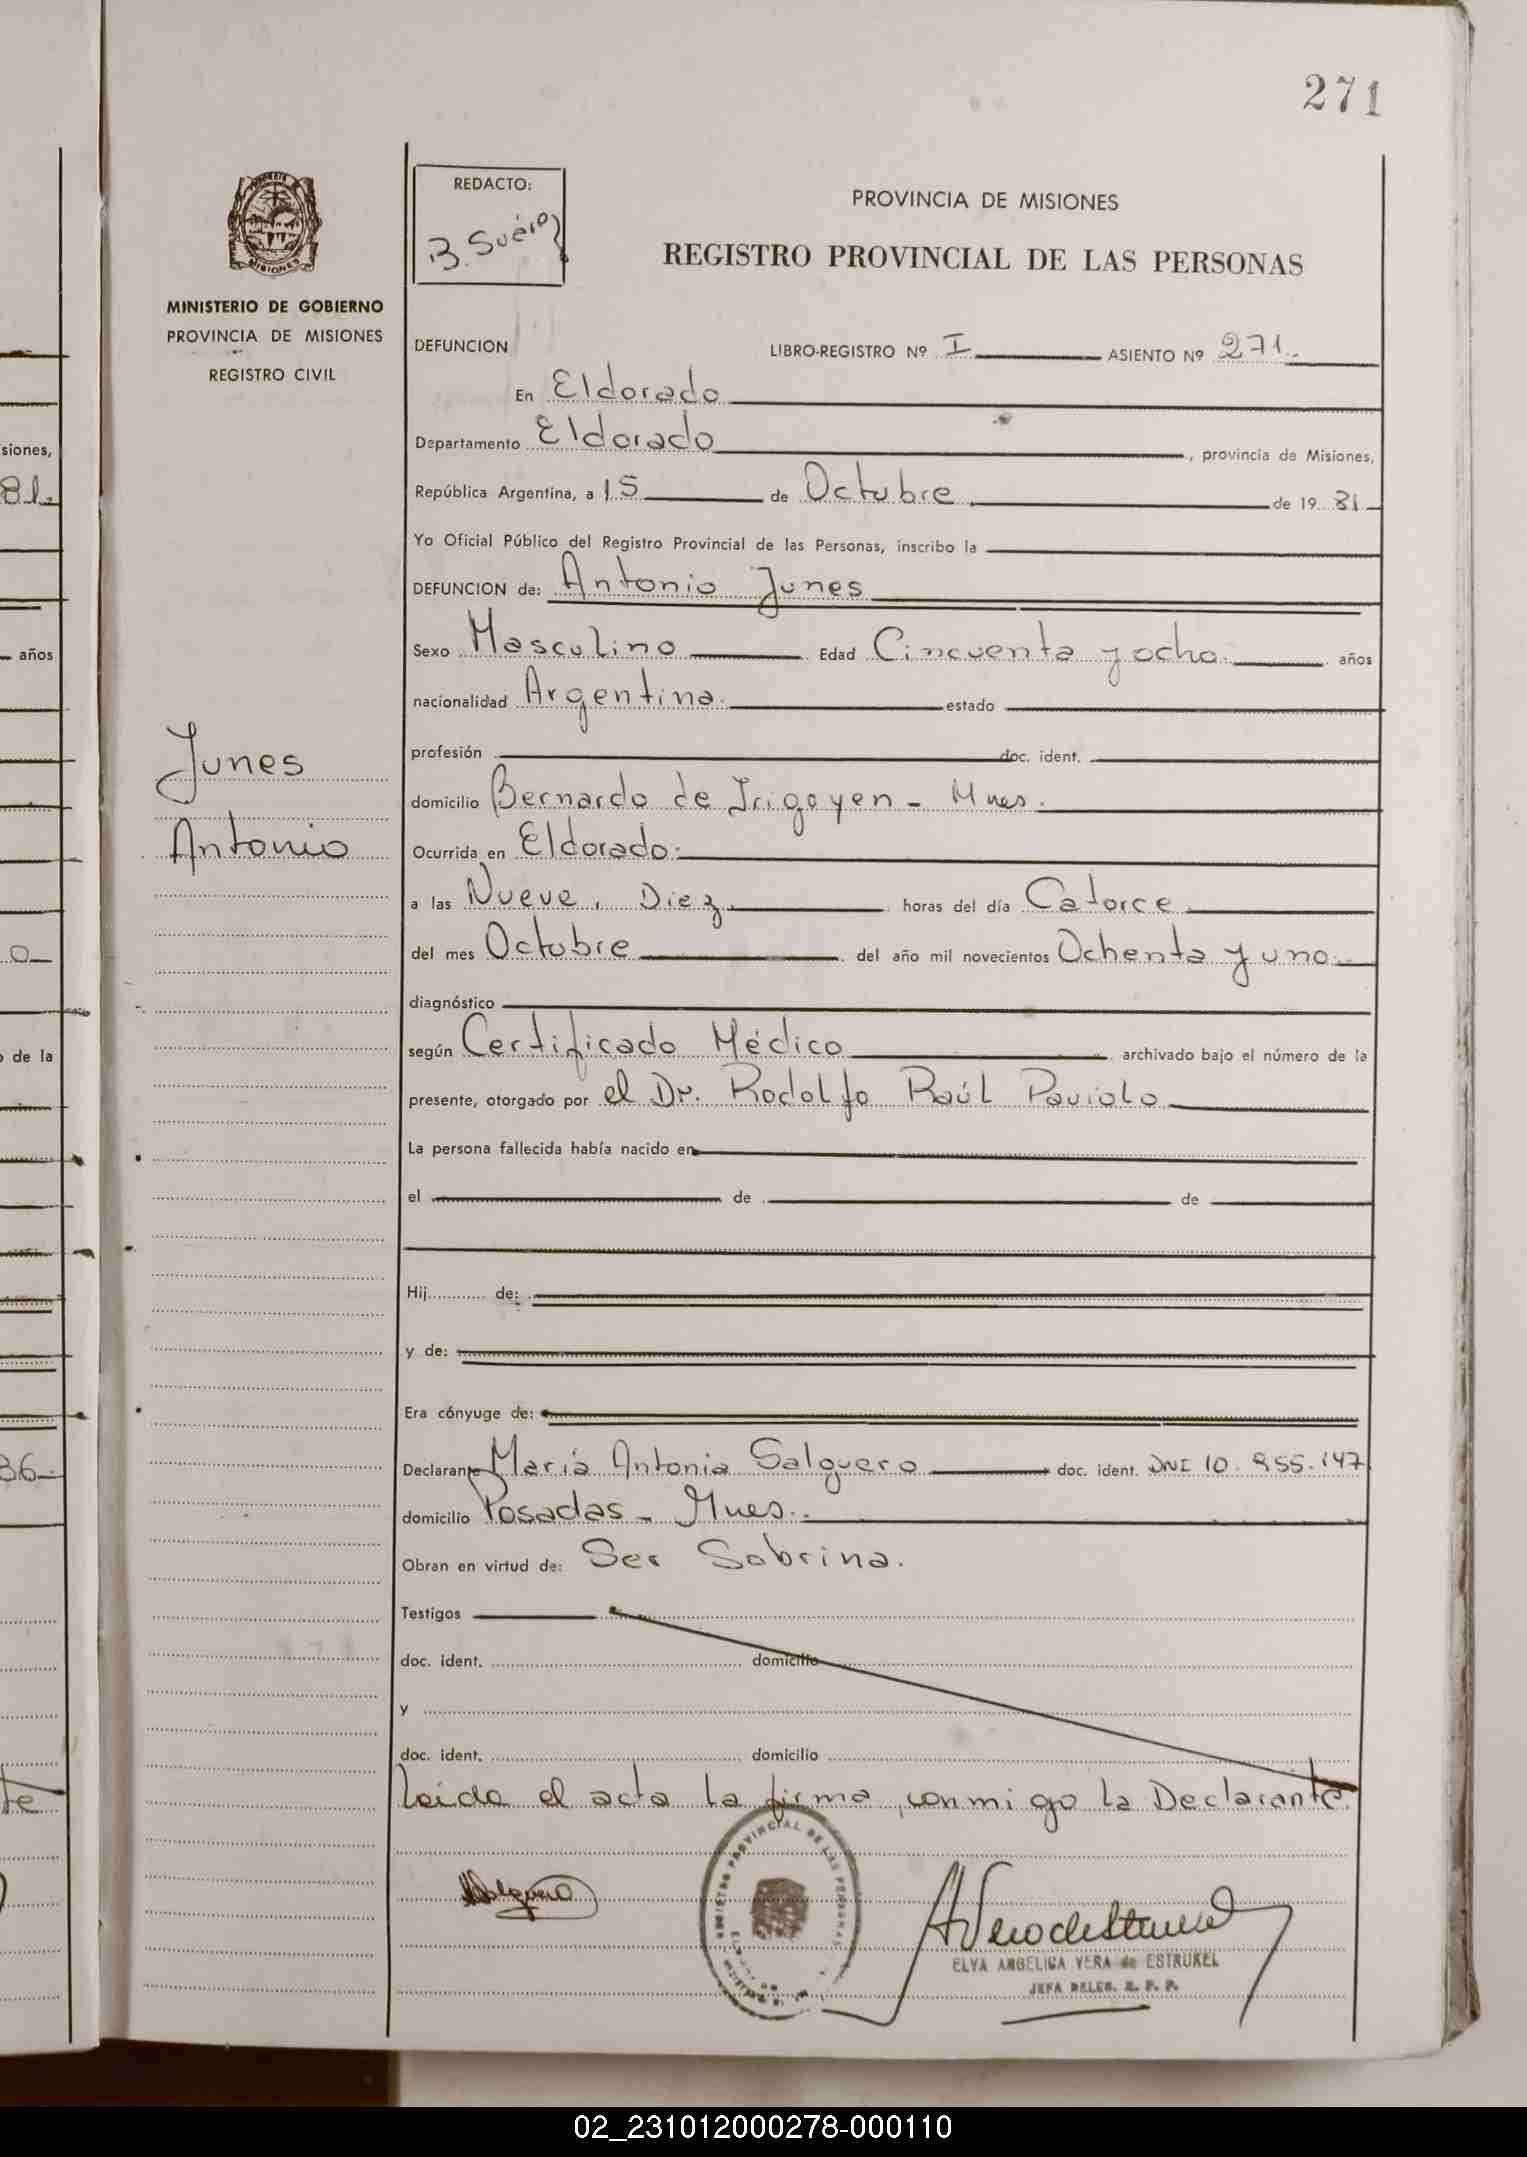 271
REDACTO:
B. Suárez
PROVINCIA DE MISIONES
REGISTRO PROVINCIAL DE LAS PERSONAS
MISIONES
MINISTERIO DE GOBIERNO
PROVINCIA DE MISIONES
REGISTRO CIVIL
DEFUNCION LIBRO-REGISTRO Nº I ASIENTO Nº 271.
En Eldorado
Departamento Eldorado, provincia de Misiones,
República Argentina, a 15 de Octubre de 19 81
Yo Oficial Público del Registro Provincial de las Personas, inscribo la
DEFUNCION de: Antonio Junes
Sexo Masculino Edad Cincuenta y ocho. años
nacionalidad Argentina. estado
profesión doc. ident.
Junes
domicilio Bernardo de Irigoyen - Mnes.
Antonio
Ocurrida en Eldorado.
a las Nueve, Diez horas del día Catorce
del mes Octubre del año mil novecientos Ochenta y uno.
diagnóstico
según Certificado Médico archivado bajo el número de la
presente, otorgado por el Dr. Rodolfo Raúl Paviolo
La persona fallecida había nacido en
el de de
Hij de:
y de:
Era cónyuge de:
Declarante María Antonia Salguero doc. ident. DNI 10.955.147
domicilio Posadas - Mnes.
Obran en virtud de: Ser Sobrina.
Testigos
doc. ident. domicilio
y
doc. ident. domicilio
Leida el acta la firma, conmigo la Declarante.
REGISTRO PROVINCIAL DE LAS PERSONAS
ELVA ANGELICA VERA de ESTRUKEL
JEFA DELEG. R. P. P.
siones,
81.
años
0
de la
36
te
02_231012000278-000110